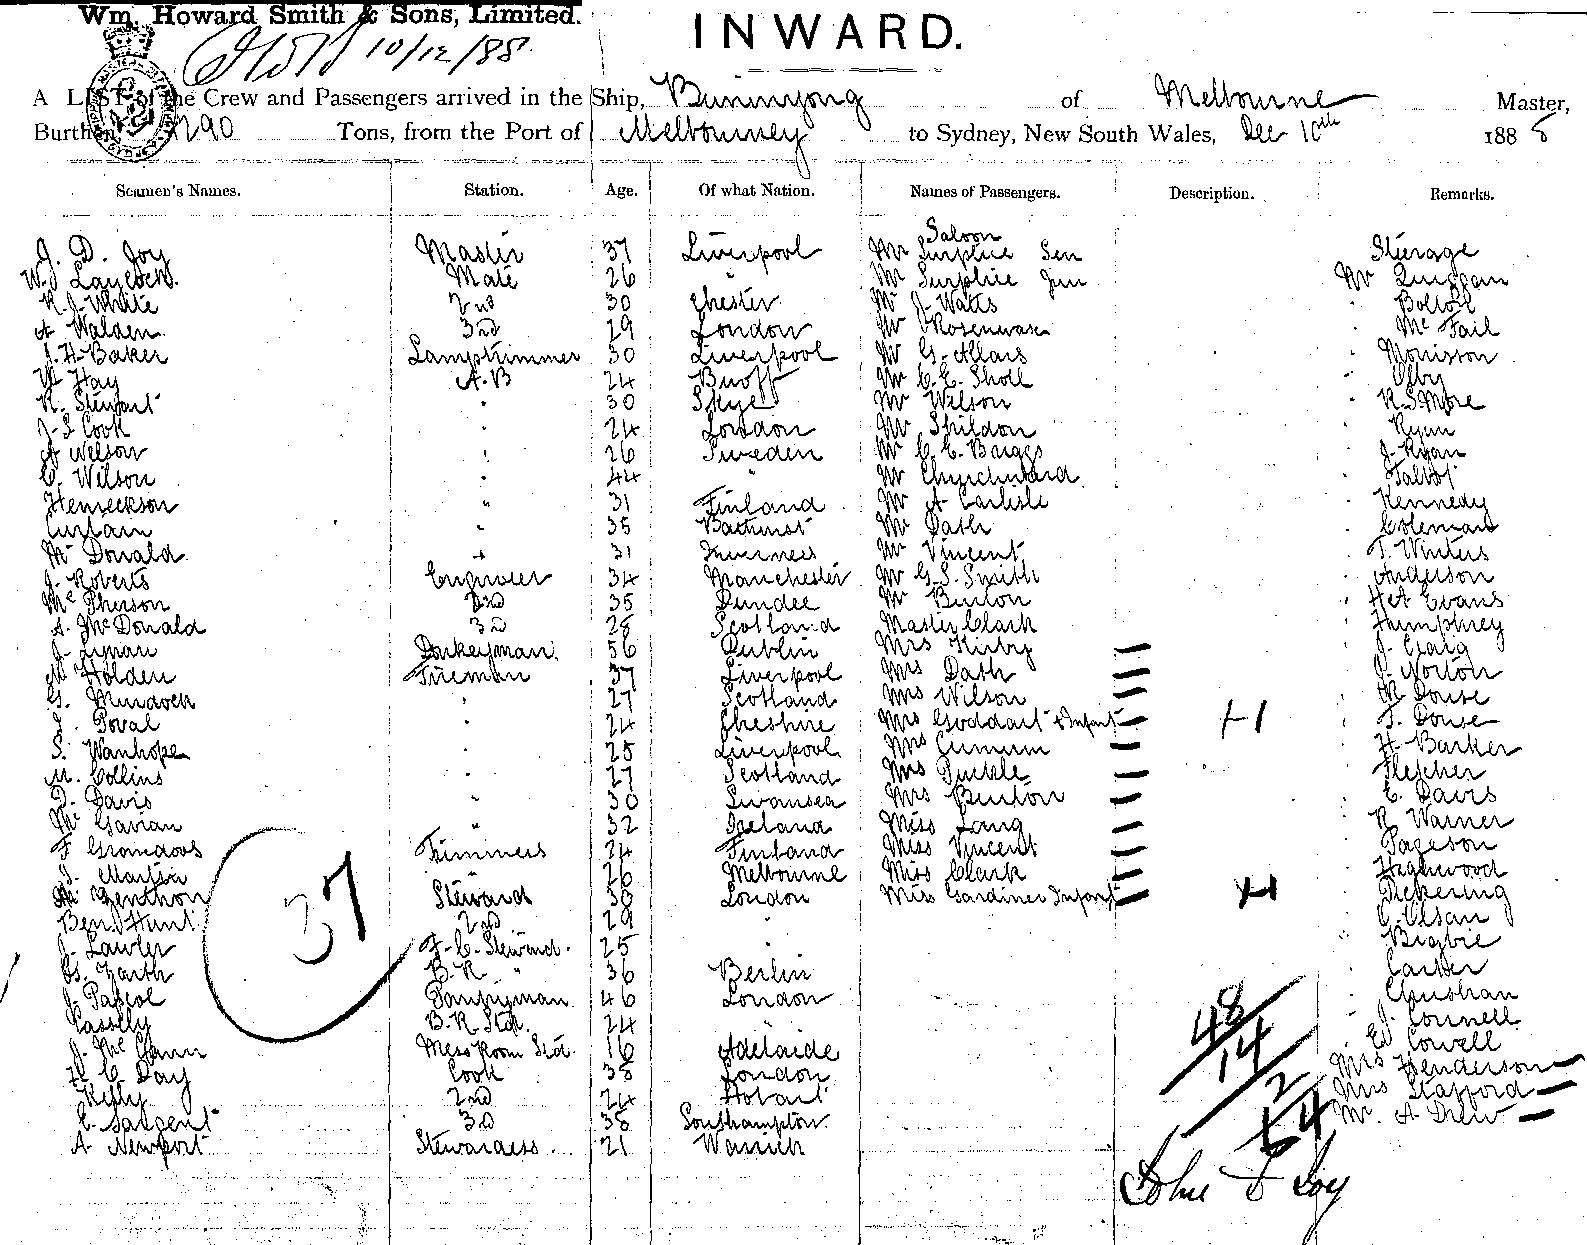 Wm. Howard Smith & Sons, Limited.
INWARD.
10/12/88
A LIST of the Crew and Passengers arrived in the Ship, Buninyong of Melbourne Master,
Burthen 1290 Tons, from the Port of Melbourney to Sydney, New South Wales, Dec 10th 1888
Seamen's Names. Station. Age. Of what Nation. Names of Passengers. Description. Remarks.
Saloon
J. D. Joy Master 37 Liverpool Mr Surplice Sen Sterage
W. J Laycock. Mate 26 " Mr Surplice Jun Mr
R. J. White 2nd 30 Chester Mr J. Watts
A Walden 3rd 29 London Mr Mc Fail
J. H. Baker Lamptrimmer 30 Liverpool Mr G. Morisson
W Hay A.B 24 Mr C. E. Sholl
R. Stewart " 30 Skye Mr Wilson
J. S Cook " 24 London Mr Shildon Ryan
A Welson " 26 Sweden Mr C. C. Baggs J. Ryan
C. Wilson " 44 " Mr Churchward Talbot
Henreckson " 31 Finland Mr A Carlisle Kennedy
Curtain " 35 Bathurst Mr Dath Coleman
Mc Donald " 31 Inverness Mr Vincent T. Winters
J. Roberts Engineer 34 Manchester Mr G. S. Smith Anderson
Mc Pherson 2nd 35 Dundee Mr Burton H A Evans
A. McDonald 3rd 28 Scotland Master Clark Humphrey
J. Lynan Donkeyman 56 Dublin Mrs Kirby J. Craig
Holden Fireman 37 Liverpool Mrs Dath J. Norton
G. Murdoch " 27 Scotland Mrs Wilson M Douse
J. Poval " 24 Cheshire Mrs Goddart & Infant H T. Douse
S. Wanhope " 25 Liverpool Mrs H. Barker
M. Collins " 27 Scotland Mrs Puckle Fletcher
D. Davis " 30 Swansea Mrs Burton C. Davis
Mc Gavian " 32 Ireland Miss Lang R. Warner
F Trimmers 24 Finland Miss Vincent Pageson
S. Martin " 26 Melbourne Miss Clark Highwood
Steward 30 London Miss Gardiner Infant H Pickering
Ben Hunt 2nd 29 " C. Olsan
J. Lawler F. C. Steward. 25 "
Gs. Zarth B. R " 36 Berlin Carter
J. Pascoe Pantryman 46 London
Cassely B. R Std. 24 " J. Connell
J. Mc Gann Mess Room Std. 16 Adelaide Ed Cowell
H C Day Cook 38 London Mrs Henderson
Kelly 2nd 24 Hobart Mrs Stafford
E. Sargent 3rd 38 Southampton Mr. A Drew
A Newport Stewardess 21 Warwick
37
48
14
2
64
John D Joy